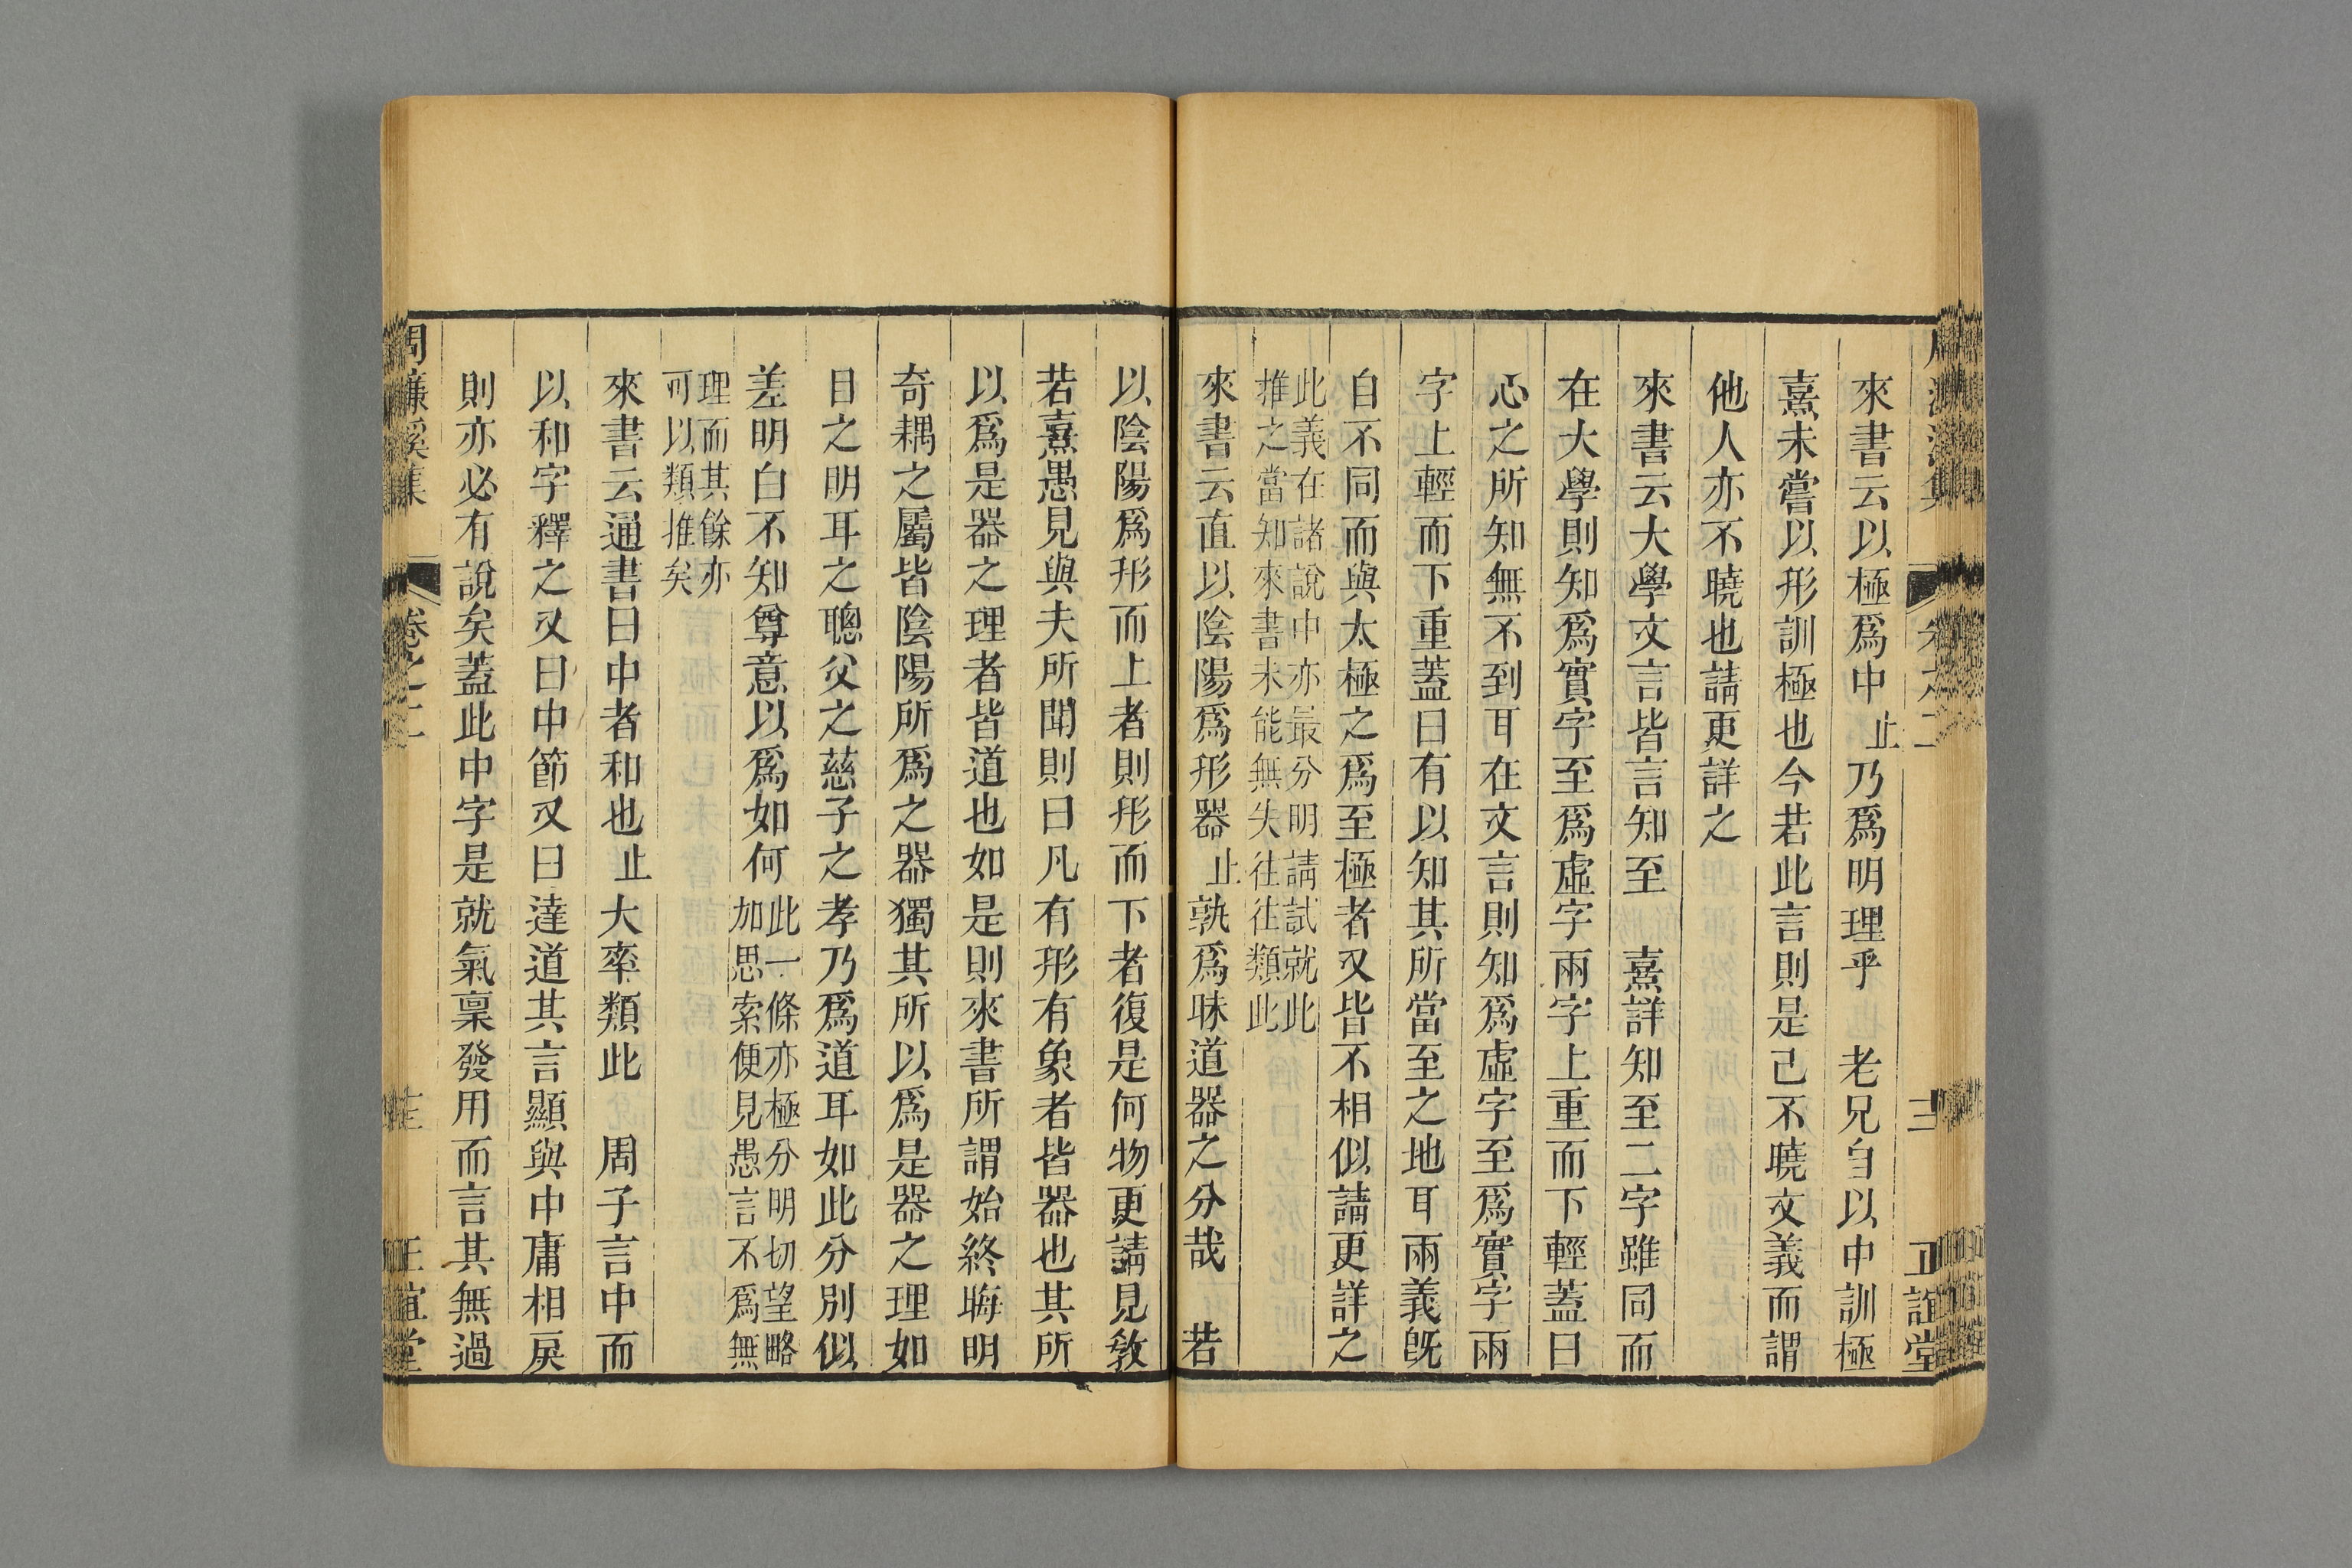 來書云以極爲中止乃爲明理乎 老兄自以中訓極
熹未嘗以形訓極也今若此言則是己不曉文義而謂
他人亦不曉也請更詳之
來書云大學文言皆言知至 熹詳知至二字雖同而
在大學則知爲實字至爲虛字兩字上重而下輕蓋曰
心之所知無不到耳在文言則知爲虛字至爲實字兩
字上輕而下重蓋曰有以知其所當至之地耳兩義旣
自不同而與太極之爲至極者又皆不相似請更詳之
此義在諸說中亦最分明請試就此
推之當知來書未能無失往往類此
來書云直以陰陽爲形器止孰爲昧道器之分哉 若
以陰陽爲形而上者則形而下者復是何物更請見敎
若熹愚見與夫所聞則曰凡有形有象者皆器也其所
以爲是器之理者皆道也如是則來書所謂始終晦明
奇耦之屬皆陰陽所爲之器獨其所以爲是器之理如
目之明耳之聰父之慈子之孝乃爲道耳如此分別似
差明白不知尊意以爲如何
此一條亦極分明切望略
加思索便見愚言不爲無
理而其餘亦
可以類推矣
來書云通書曰中者和也止大率類此 周子言中而
以和字釋之又曰中節又曰達道其言顯與中庸相戾
則亦必有說矣蓋此中字是就氣稟發用而言其無過
周濂溪集 卷之二 正誼堂